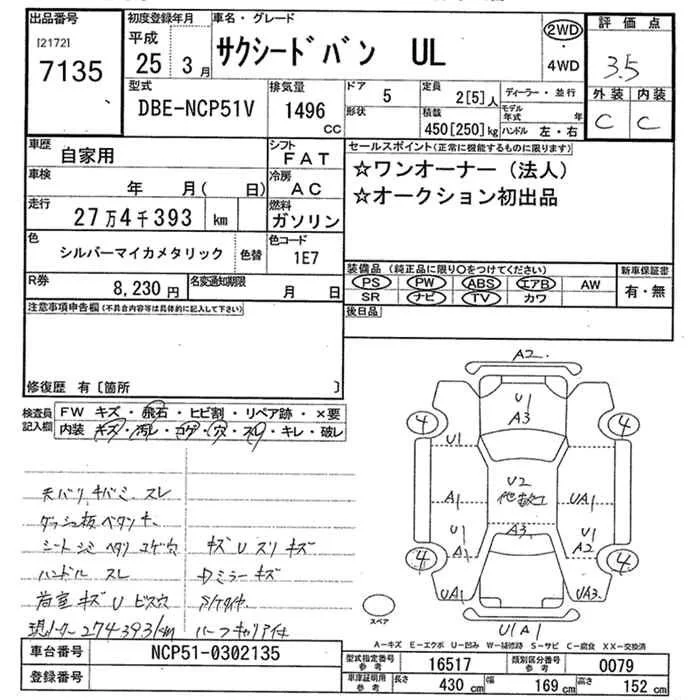 出品番号 初度登録年月 車名・グレード 評価点
[2172] 7135 平成 25 3月 サクシードバン UL 2WD・4WD 3.5
型式 排気量 ドア 定員 ディーラー・並行 外装 内装
DBE-NCP51V 1496 CC 5 2[5]人 モデル年式 年 C C
形状 積載 450[250]kg ハンドル 左・右
車歴 自家用 シフト FAT セールスポイント(正常に機能するものに限ります)
車検 年 月( 日) 冷房 AC ☆ワンオーナー(法人)
走行 27万4千393 km 燃料 ガソリン ☆オークション初出品
色 シルバーマイカメタリック 色替 色コード 1E7
R券 8,230円 名変通知期限 月 日 装備品(純正品に限り○をつけてください) 新車保証書
PS PW ABS エアB AW 有・無
SR ナビ TV カワ
注意事項申告欄(不具合内容等は具体的に記入して下さい) 後日品
修復歴 有[箇所 ]
検査員記入欄 FW キズ・飛石・ヒビ割・リペア跡・×要
内装 キズ・汚レ・コゲ・穴・スレ・キレ・破レ
天バリ キバミ スレ
ダッシュ板ベタツキ
シート シミ ヘタリ コゲ穴 キズ U スリキズ
ハンドル スレ Dミラーキズ
荷室 キズ U ビス穴
現メーター274393km ハーフキャリア付
A2
U1 A3
4 4
U1
U2
A1 UA1
A3
U1 A2 U1 A2
4 4
UA1 UA3
U1 A1
スペア
A-キズ E-エクボ U-凹み W-補修跡 S-サビ C-腐食 XX-交換済
車台番号 NCP51-0302135 型式指定番号 16517 類別区分番号 0079
登録番号 車庫証明用参考 長さ 430 cm 幅 169 cm 高さ 152 cm